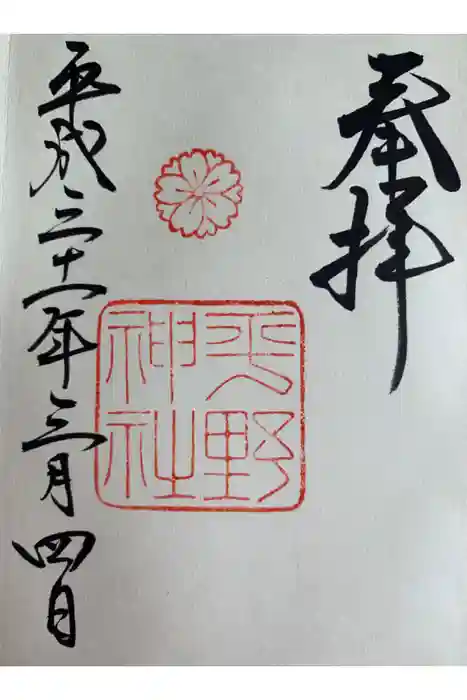 奉拝
平野
神社
平成三十一年三月四日